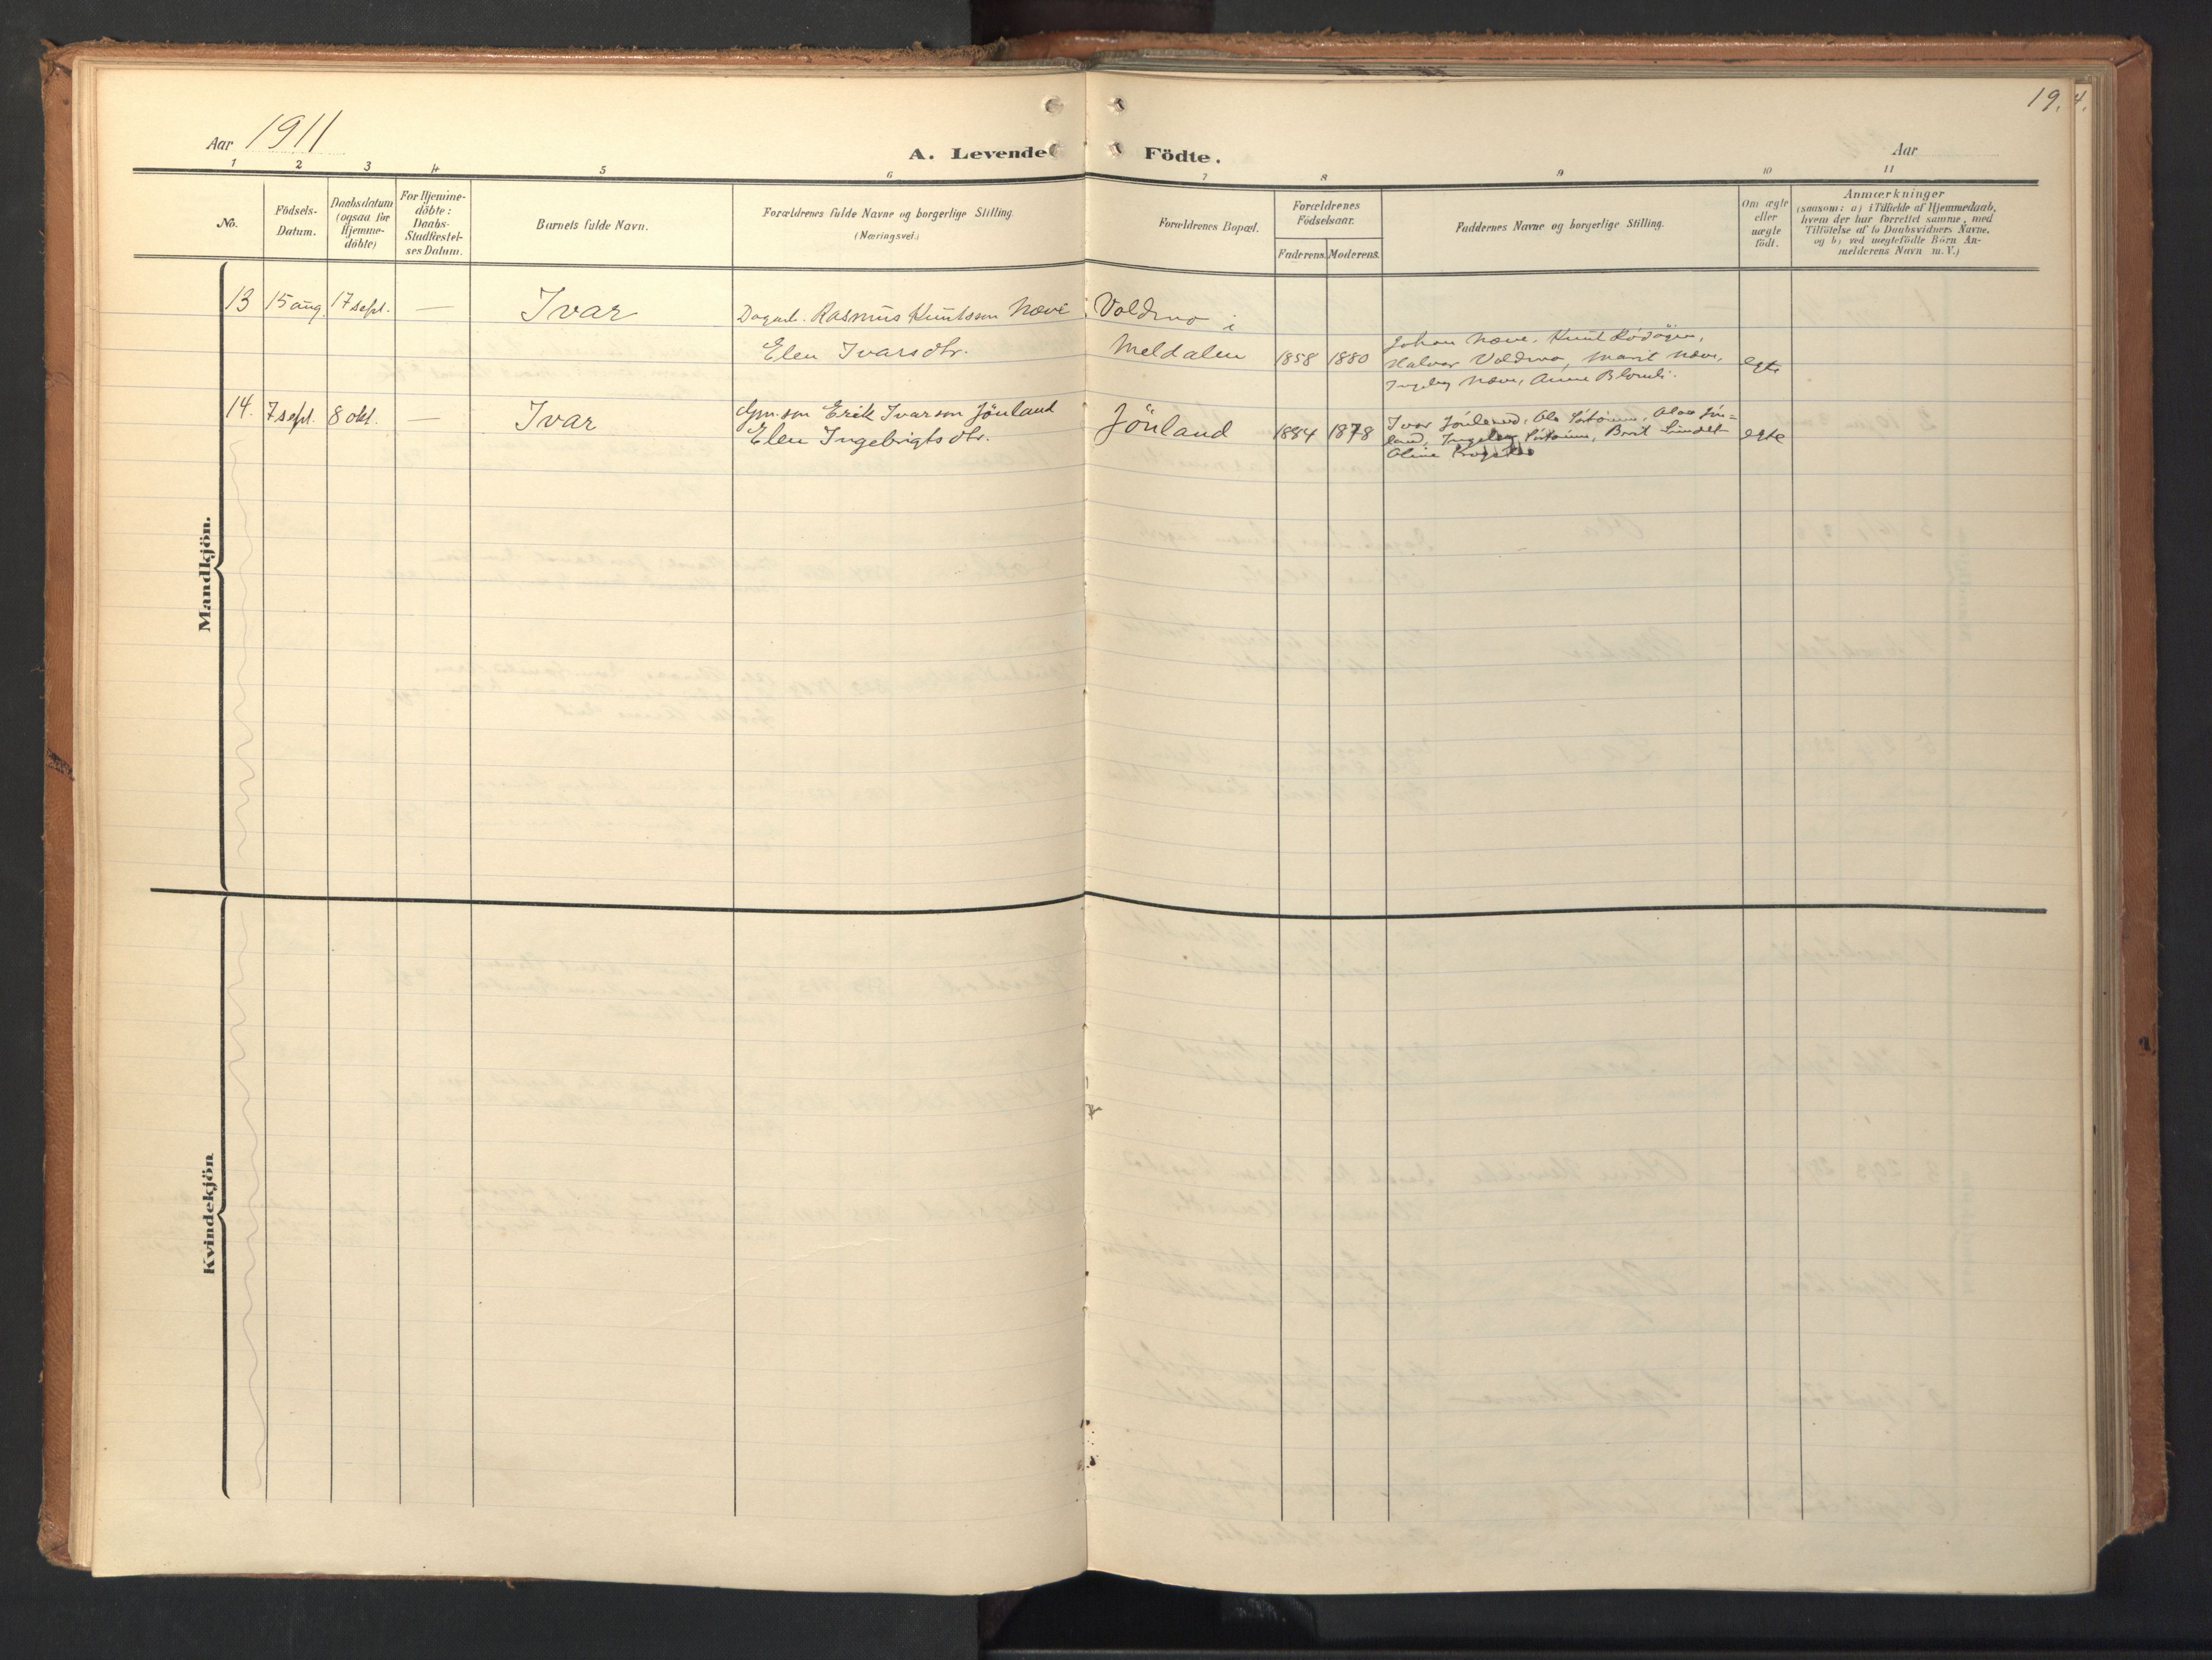 19.
4.
Aar 1911
A. Levende Födte.
Aar
1 2 3 4 5 6 7 8 9 10 11
No.
Födsels-
Datum.
Daabsdatum
(ogsaa for
Hjemme-
döbte)
For Hjemme-
döbte:
Daabs-
Stadfæstel-
ses Datum.
Barnets fulde Navn.
Forældrenes fulde Navne og borgerlige Stilling
(Næringsvei.)
Forældrenes Bopæl.
Forældrenes
Födselsaar.
Faderens. Moderens.
Faddernes Navne og borgerlige Stilling.
Om ægte
eller
uægte
födt.
Anmærkninger
(saasom: a) i Tilfælde af Hjemmedaab,
hvem der har forrettet samme, med
Tilföielse af to Daabsvidners Navne,
og b) ved uægtefödte Börn An-
melderens Navn m. V.)
Mandkjön.
13 15 aug. 17 sept. — Ivar
Dagarb. Rasmus Knutsson Næve
Elen Ivarsdtr.
Voldmo i
Meldalen
1858 1880
Johan Næve, Knut
Halvor Voldmo, Marit Næve,
Ingebg Næve, Anne Blomli.
egte
14. 7 sept. 8 okt. — Ivar
Gm.søn Erik Ivarson Jönland
Elen Ingebrigtsdtr.
Jönland
1884 1878
Ivar Jönland, Ola Olav Jön=
land, Ingebg Brit
Oline
egte
Kvindekjön